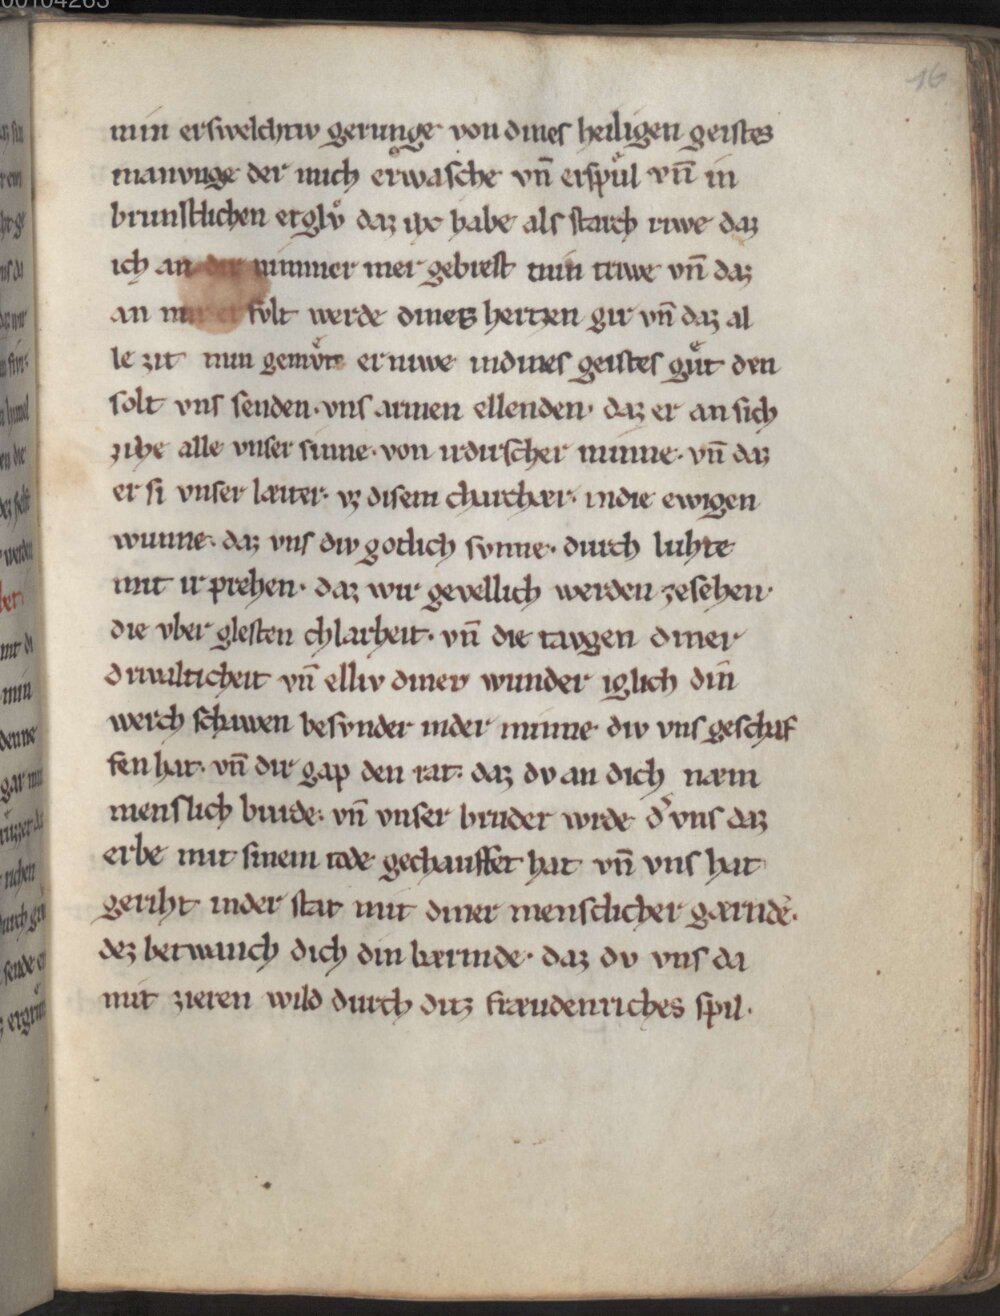 00104263
16
min erswelchtiv gerunge von dines heiligen geistes
manvnge der mich erwasche vn̄ erspuͤl vn̄ in
brunstlichen erglvͤ daz ich habe als starch riwe daz
ich an dir nimmer mer gebrest min triwe vn̄ daz
an mir erfvlt werde dines hertzen gir vn̄ daz al
le zit min gemvͤte erniwe indines geistes guͤt den
solt vns senden· vns armen ellenden· daz er an sich
zihe alle vnser sinne· von irdischer minne· vn̄ daz
er si vnser læiter· vz disem charchær· indie ewigen
wunne· daz vns div gotlich svnne· durch luhte
mit ir prehen· daz wir gevellich werden zesehen·
die vber glesten chlarheit· vn̄ die tavgen diner
drivalticheit vn̄ elliv diner wunder iglich din̄
werch schawen besvnder inder minne div vns geschaf
fen hat· vn̄ dir gap den rat· daz dv an dich næm
menslich burde· vn̄ vnser bruder wrde d͛ vns daz
erbe mit sinem tode gechauffet hat vn̄ vns hat
geriht inder stat mit diner mensclicher gærnde·
dez betwanch dich din bærmde· daz dv vns da
mit zieren wild durch ditz fræudenriches spil·